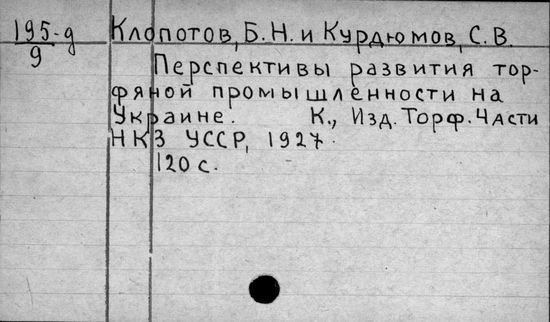 195-д
9
Клопотов, Б.Н. и Курдюмов, С.В.
Перспективы развития тор-
фяной промышленности на
Украине. К., Изд. Торф. Части
НКЗ УССР, 1927.
120 с.